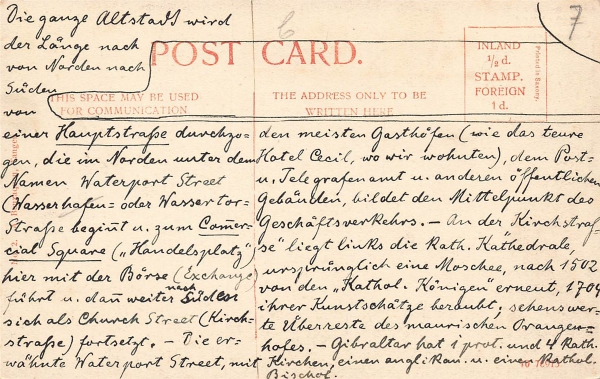 7
Die ganze Altstadt wird
der Länge nach
von Norden nach
Süden
von
POST CARD.
THIS SPACE MAY BE USED
FOR COMMUNICATION
THE ADDRESS ONLY TO BE
WRITTEN HERE
INLAND
½ d.
STAMP.
FOREIGN
1 d.
Printed in Saxony.
einer Hauptstraße durchzo-
gen, die im Norden unter dem
Namen Waterport Street
(Wasserhafen- oder Wassertor-
Straße begiñt u. zum Com̃er-
cial Square ("Handelsplatz")
hier mit der Börse (Exchange)
führt u. dañ weiter nach Süden
sich als Church Street (Kirch-
straße) fortsetzt. – Die er-
wähnte Waterport Street, mit
den meisten Gasthöfen (wie das teure
Hotel Cecil, wo wir wohnten), dem Post-
u. Telegrafenamt u. anderen öffentlichen
Gebäuden, bildet den Mittelpunkt des
Geschäftsverkehrs. – An der Kirchstraß-
se" liegt links die Kath. Kathedrale,
ursprünglich eine Moschee, nach 1502
von den "Kathol. Königen" erneut, 1704
ihrer Kunstschätze beraubt; sehenswer-
te Überreste des maurischen Orangen-
hofes. – Gibraltar hat 1 prot. und 4 Kath.
Kirchen, einen anglikan. u. einen Kathol.
Bischof.